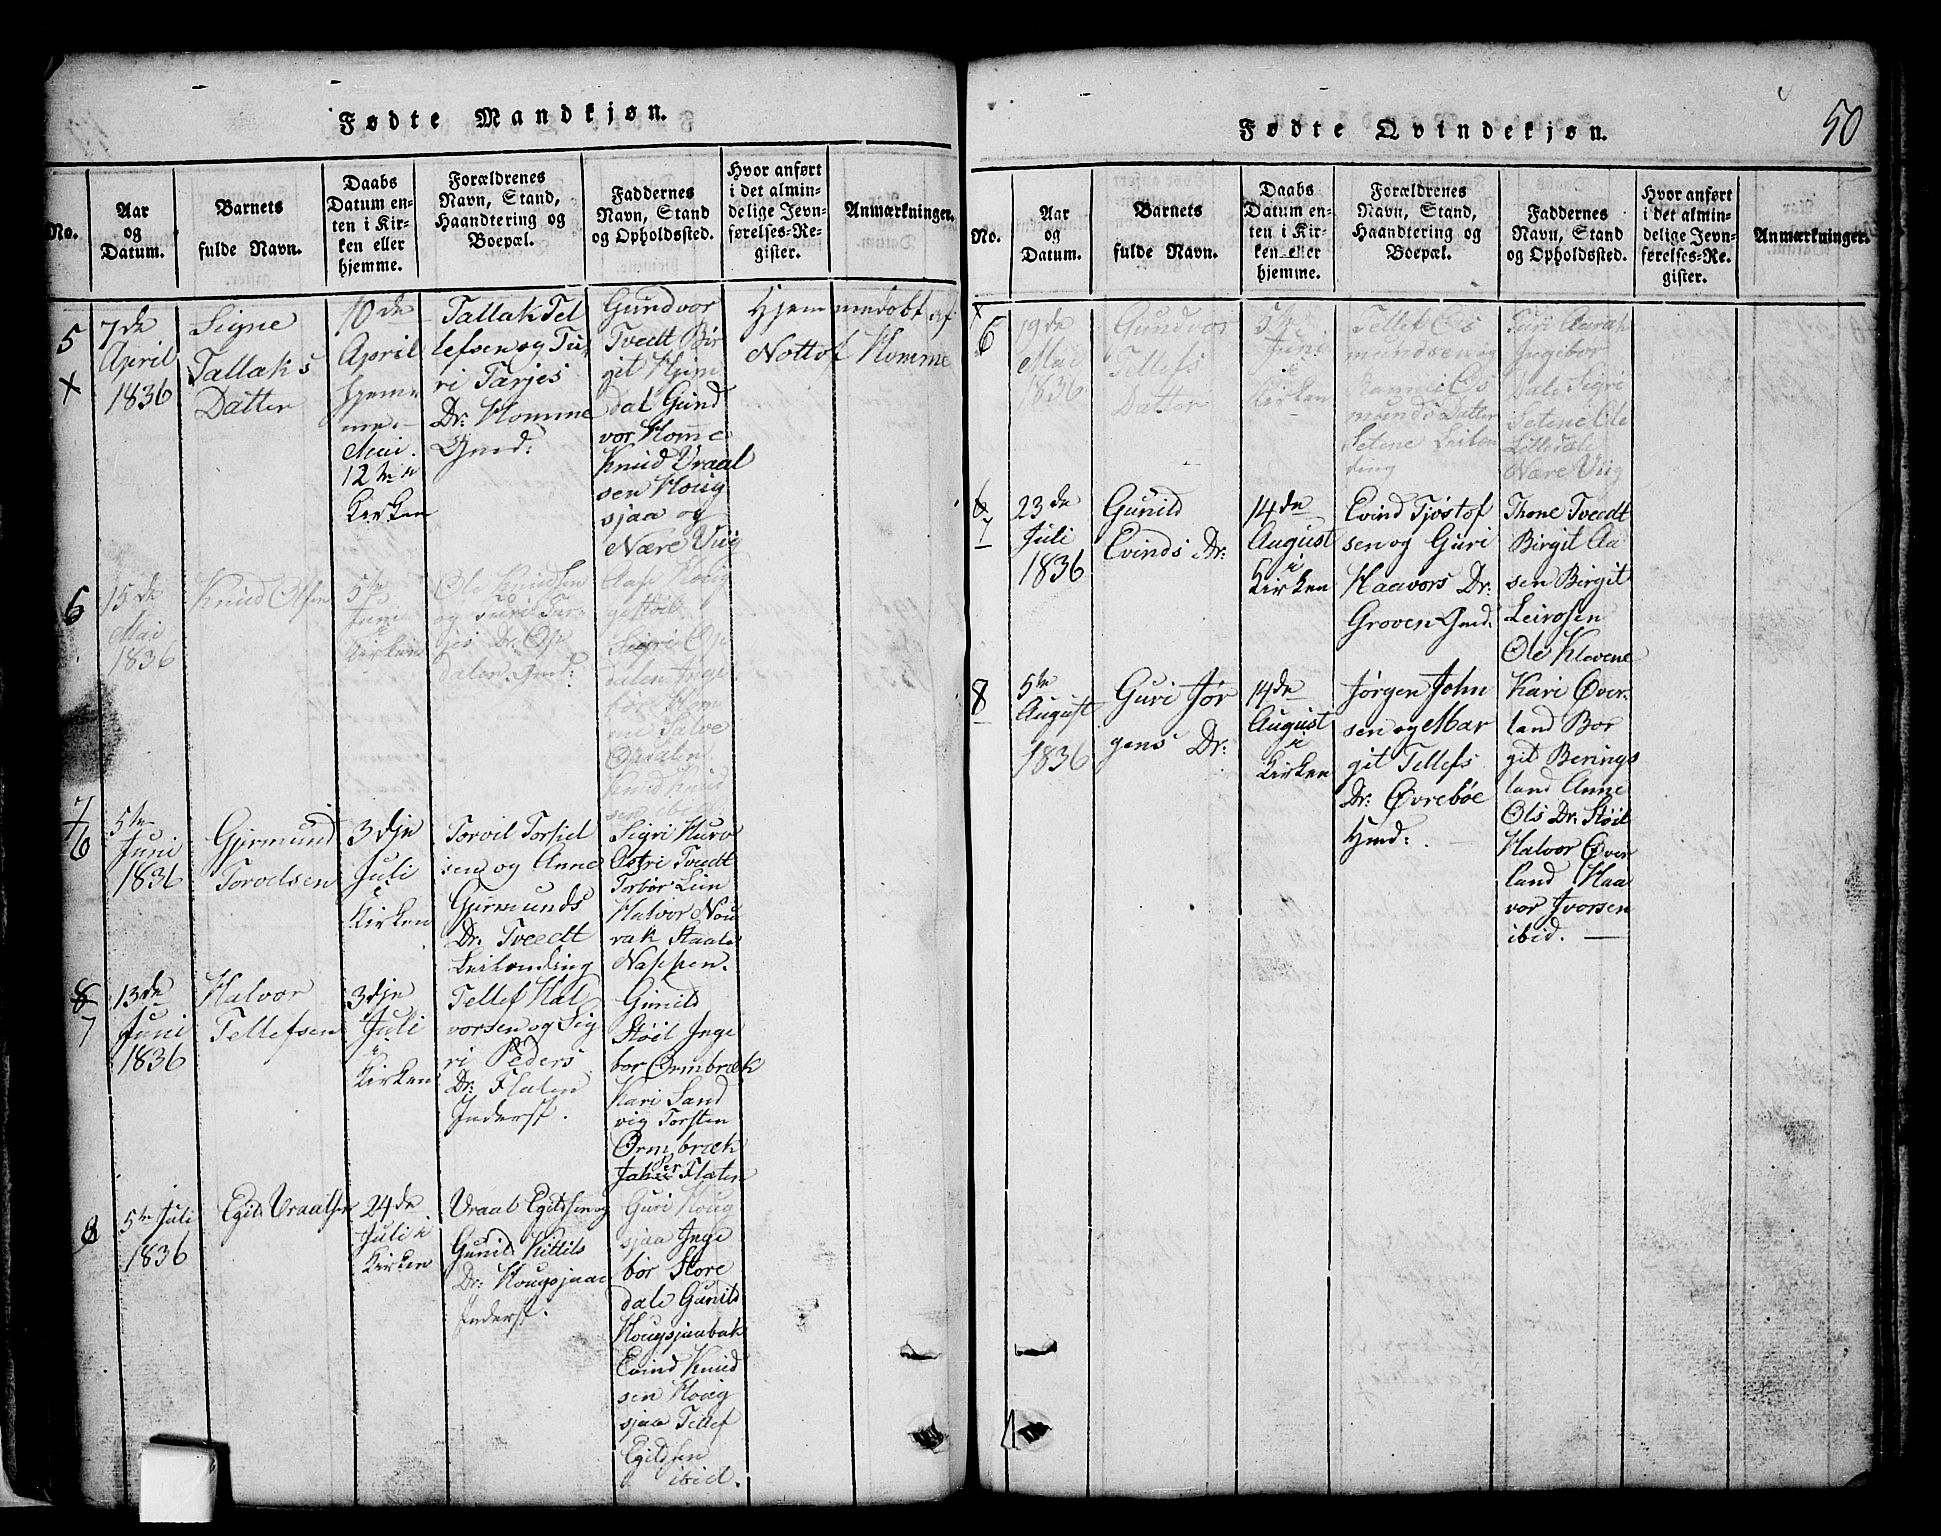 Fødte Mandkjøn.
No.
Aar
og
Datum.
Barnets
fulde Navn.
Daabs
Datum en-
ten i Kir-
ken eller
hjemme.
Forældrenes
Navn, Stand,
Haandtering og
Boepæl.
Faddernes
Navn, Stand
og Opholdssted.
Hvor anført
i det almin-
delige Jevn-
førelses-Re-
gister.
Anmærkninger.
5
x
7de
April
1836
Signe
Tallaks
Datter
10de
April
hjem
me.
Mai
12te
Kirken
Tallak Tel
lefsen og Tu
ri Tarjes
Dr. Homme
Gmd:
Gundvor
Tvedt Bir
git Hjem
dal Gund
vor Homme
Knud Vraal
sen Houg
sjaa og
Nære Viig
Hjemmedøbt af
Nottof Homme
6
15de
Mai
1836
Knud Olsen
5te
Juni
i
Kirken
Ole Knudsen
og Turi Tar-
jes Dr. Op
dalen Gmd:
Aase Houg
gestöil
Sigri Op
dalen Inge
bör Hom
me Salve
Opdalen
Knud Knud
sen ibid
7
6
5te
Juni
1836
Gjermund
Torvelsen
3dje
Juli
i
Kirken
Torvil Torsiel
sen og Anne
Gjermunds
Dr. Tveedt
Leilending
Sigri Kurv
Astri Tvedt
Torbör Lien
Halvor Nou
rak Staale
Nappen.
8
7
13de
Juni
1836
Halvor
Tellefsen
3dje
Juli
i
Kirken
Tellef Hal
vorsen og Sig
ri Peders
Dr. Flaten
Inderst.
Gunild
Stöil Inge
bor Ormbræk
Kari Sand
vig Torsten
Ormbræk
Flaten
8
5te Juli
1836
Egild Vraalsen
24de
Juli i
Kirken
Vraal Egildsen og
Gunild Kittils
Dr. Hougsjaae
Inderst.
Guri Houg
sjaa Inge
bör Store
dale Gunild
Hougsjaabak
Evind Knud
sen Houg
sjaa Tellef
Egildsen
ibid.
Fødte Qvindekjøn.
50
No.
Aar
og
Datum.
Barnets
fulde Navn.
Daabs
Datum en-
ten i Kir-
ken eller
hjemme.
Forældrenes
Navn, Stand,
Haandtering og
Boepæl.
Faddernes
Navn, Stand
og Opholdssted.
Hvor anført
i det almin-
delige Jevn-
førelses-Re-
gister.
Anmærkninger.
x
6
19de
Mai
1836
Gundvor
Tellefs
Datter
5te
Juni
i
Kirken
Tellef Os
mundsen og
Os
munds Datter
Setene Leilen
ding
Turi Aarak
Ingebor
Dale Sigri
Setene Ole
Lilledale
Nære Viig
6
7
23de
Juli
1836
Gunild
Evinds Dr.
14de
August
i
Kirken
Evind Tjöstof
sen og Guri
Haavors Dr.
Groven Gmd.
Thone Tveedt
Birgit Aa
sen Birgit
Leirosen
Ole Klevene
8
5te
August
1836
Guri Jör
gens Dr.
14de
August
i
Kirken
Jörgen John
sen og Mar
git Tellefs
Dr. Øvrebøe
Hmd:
Kari Øver-
land Bor
git Berings
land Anne
Ols Dr. Stöil
Halvor Over
land Haa
vor Ivorsen
ibid.